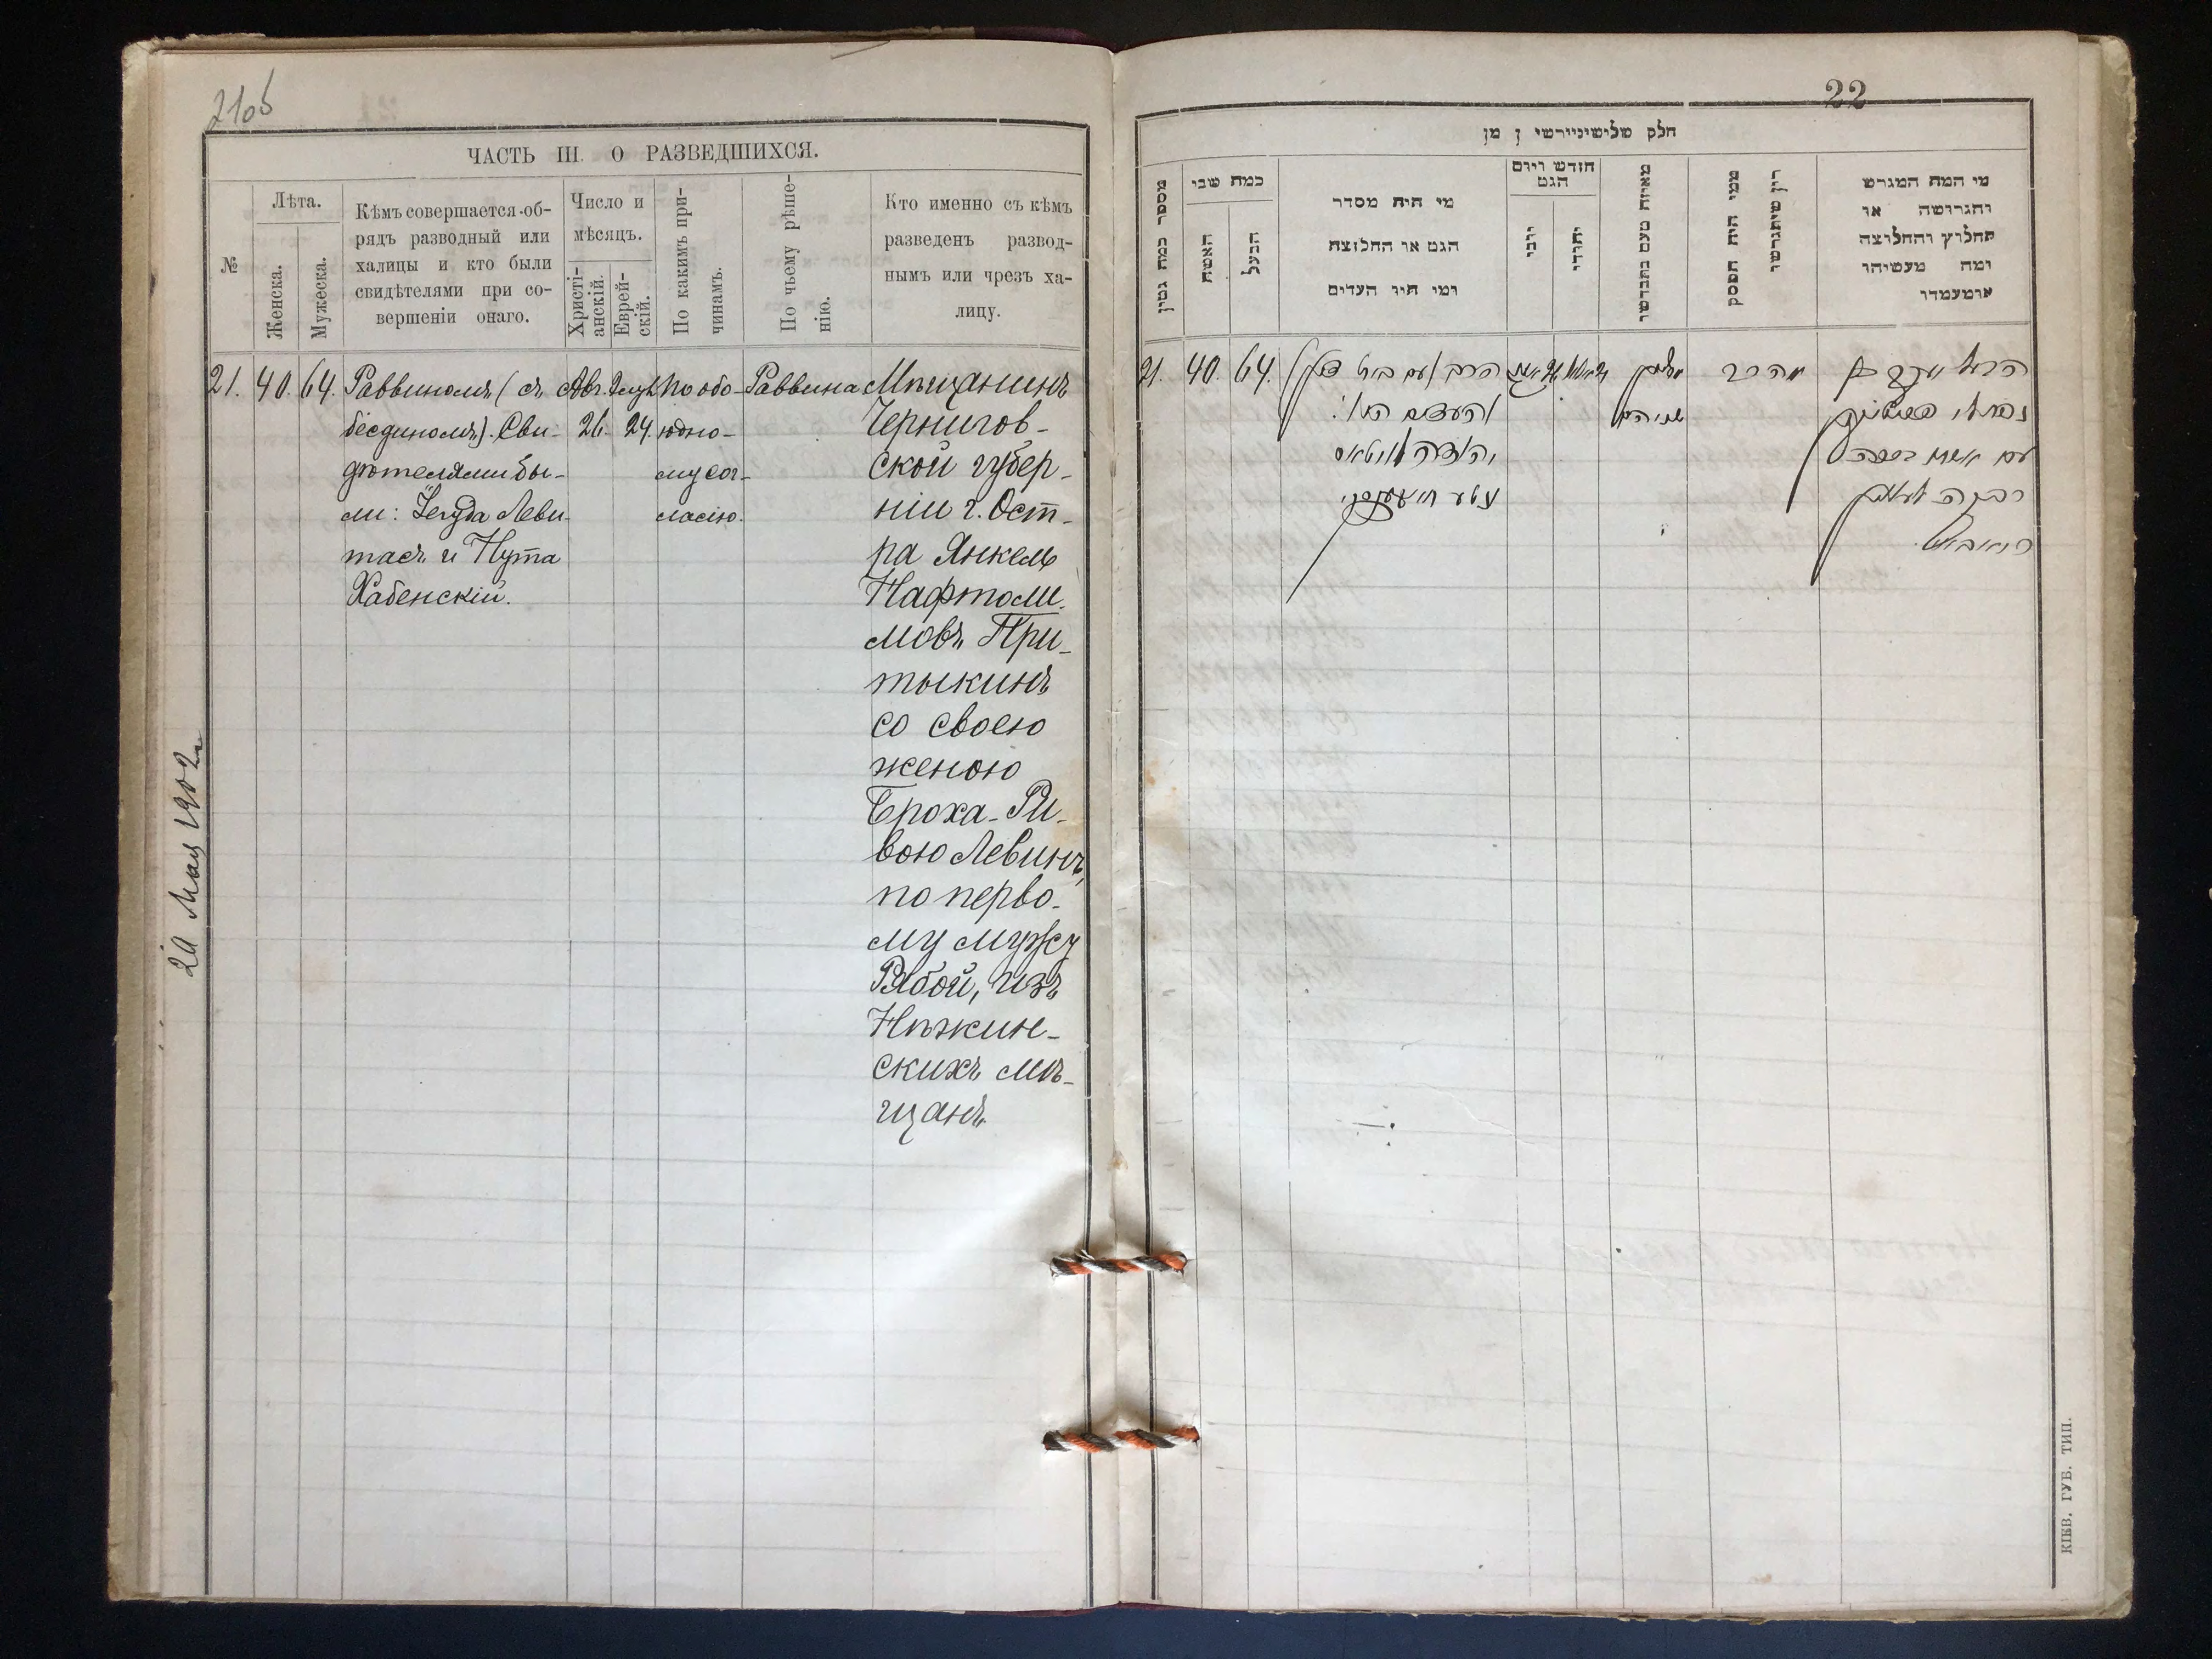 21об
ЧАСТЬ III. О РАЗВЕДШИХСЯ.
№
Лѣта.
Женска.
Мужеска.
Кѣмъ совершается об-
рядъ разводный или
халицы и кто были
свидѣтелями при со-
вершеніи онаго.
Число и
мѣсяцъ.
Христі-
анскій.
Еврей-
скій.
По какимъ при-
чинамъ.
По чьему рѣше-
нію.
Кто именно съ кѣмъ
разведенъ развод-
нымъ или чрезъ ха-
лицу.
21.
40.
64.
Раввиномъ (съ
бесдиномъ). Сви-
дѣтелями бы-
ли: Іегуда Леви-
тасъ и Нута
Хабенскій.
Авг.
26.
Элулъ
24.
По обо-
юдно-
му сог-
ласію.
Раввина
Мѣщанинъ
Чернигов-
ской губер-
ніи г. Ост-
ра Янкель
Нафтоли-
мовъ При-
тыкинъ
со своею
женою
Броха-Ри-
вою Левинъ,
по перво-
му мужу
Рябой, изъ
Нѣжин-
скихъ мѣ-
щанъ.
20 Мая 1902
22
חלק שלישי
מספר כמה גטין
כמה שני
האשה
הבעל
מי היה מסדר
הגט או החליצה
ומי היו העדים
חודש ויום
הגט
יוני
יהודי
מאיזה טעם נתגרשו
ממי היה הפסק
דין שיתגרשו
מי המה המגרש
והגרושה או
החלוץ והחלוצה
ומה מעשיהו
ומעמדו
21.
40.
64.
הרב
והעדים
שניהם
עם אשתו
רבקה
КІЕВ. ГУБ. ТИП.